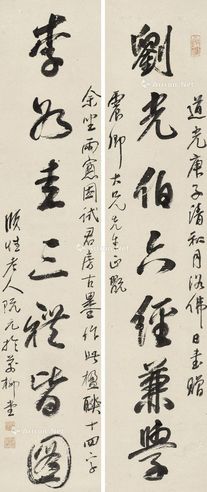 劉光伯六經兼學
道光庚子清和月浴佛日書贈
震卿大兄先生正觀
李公麟三禮皆圖
余坐雨窻因試君房古墨作此楹聯十四字
頤性老人阮元於萬柳堂